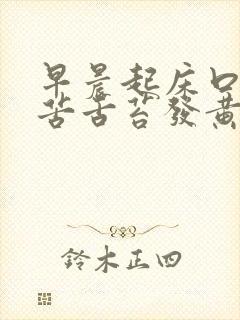 早晨起床口
苦舌苔發黃
鈴木正四